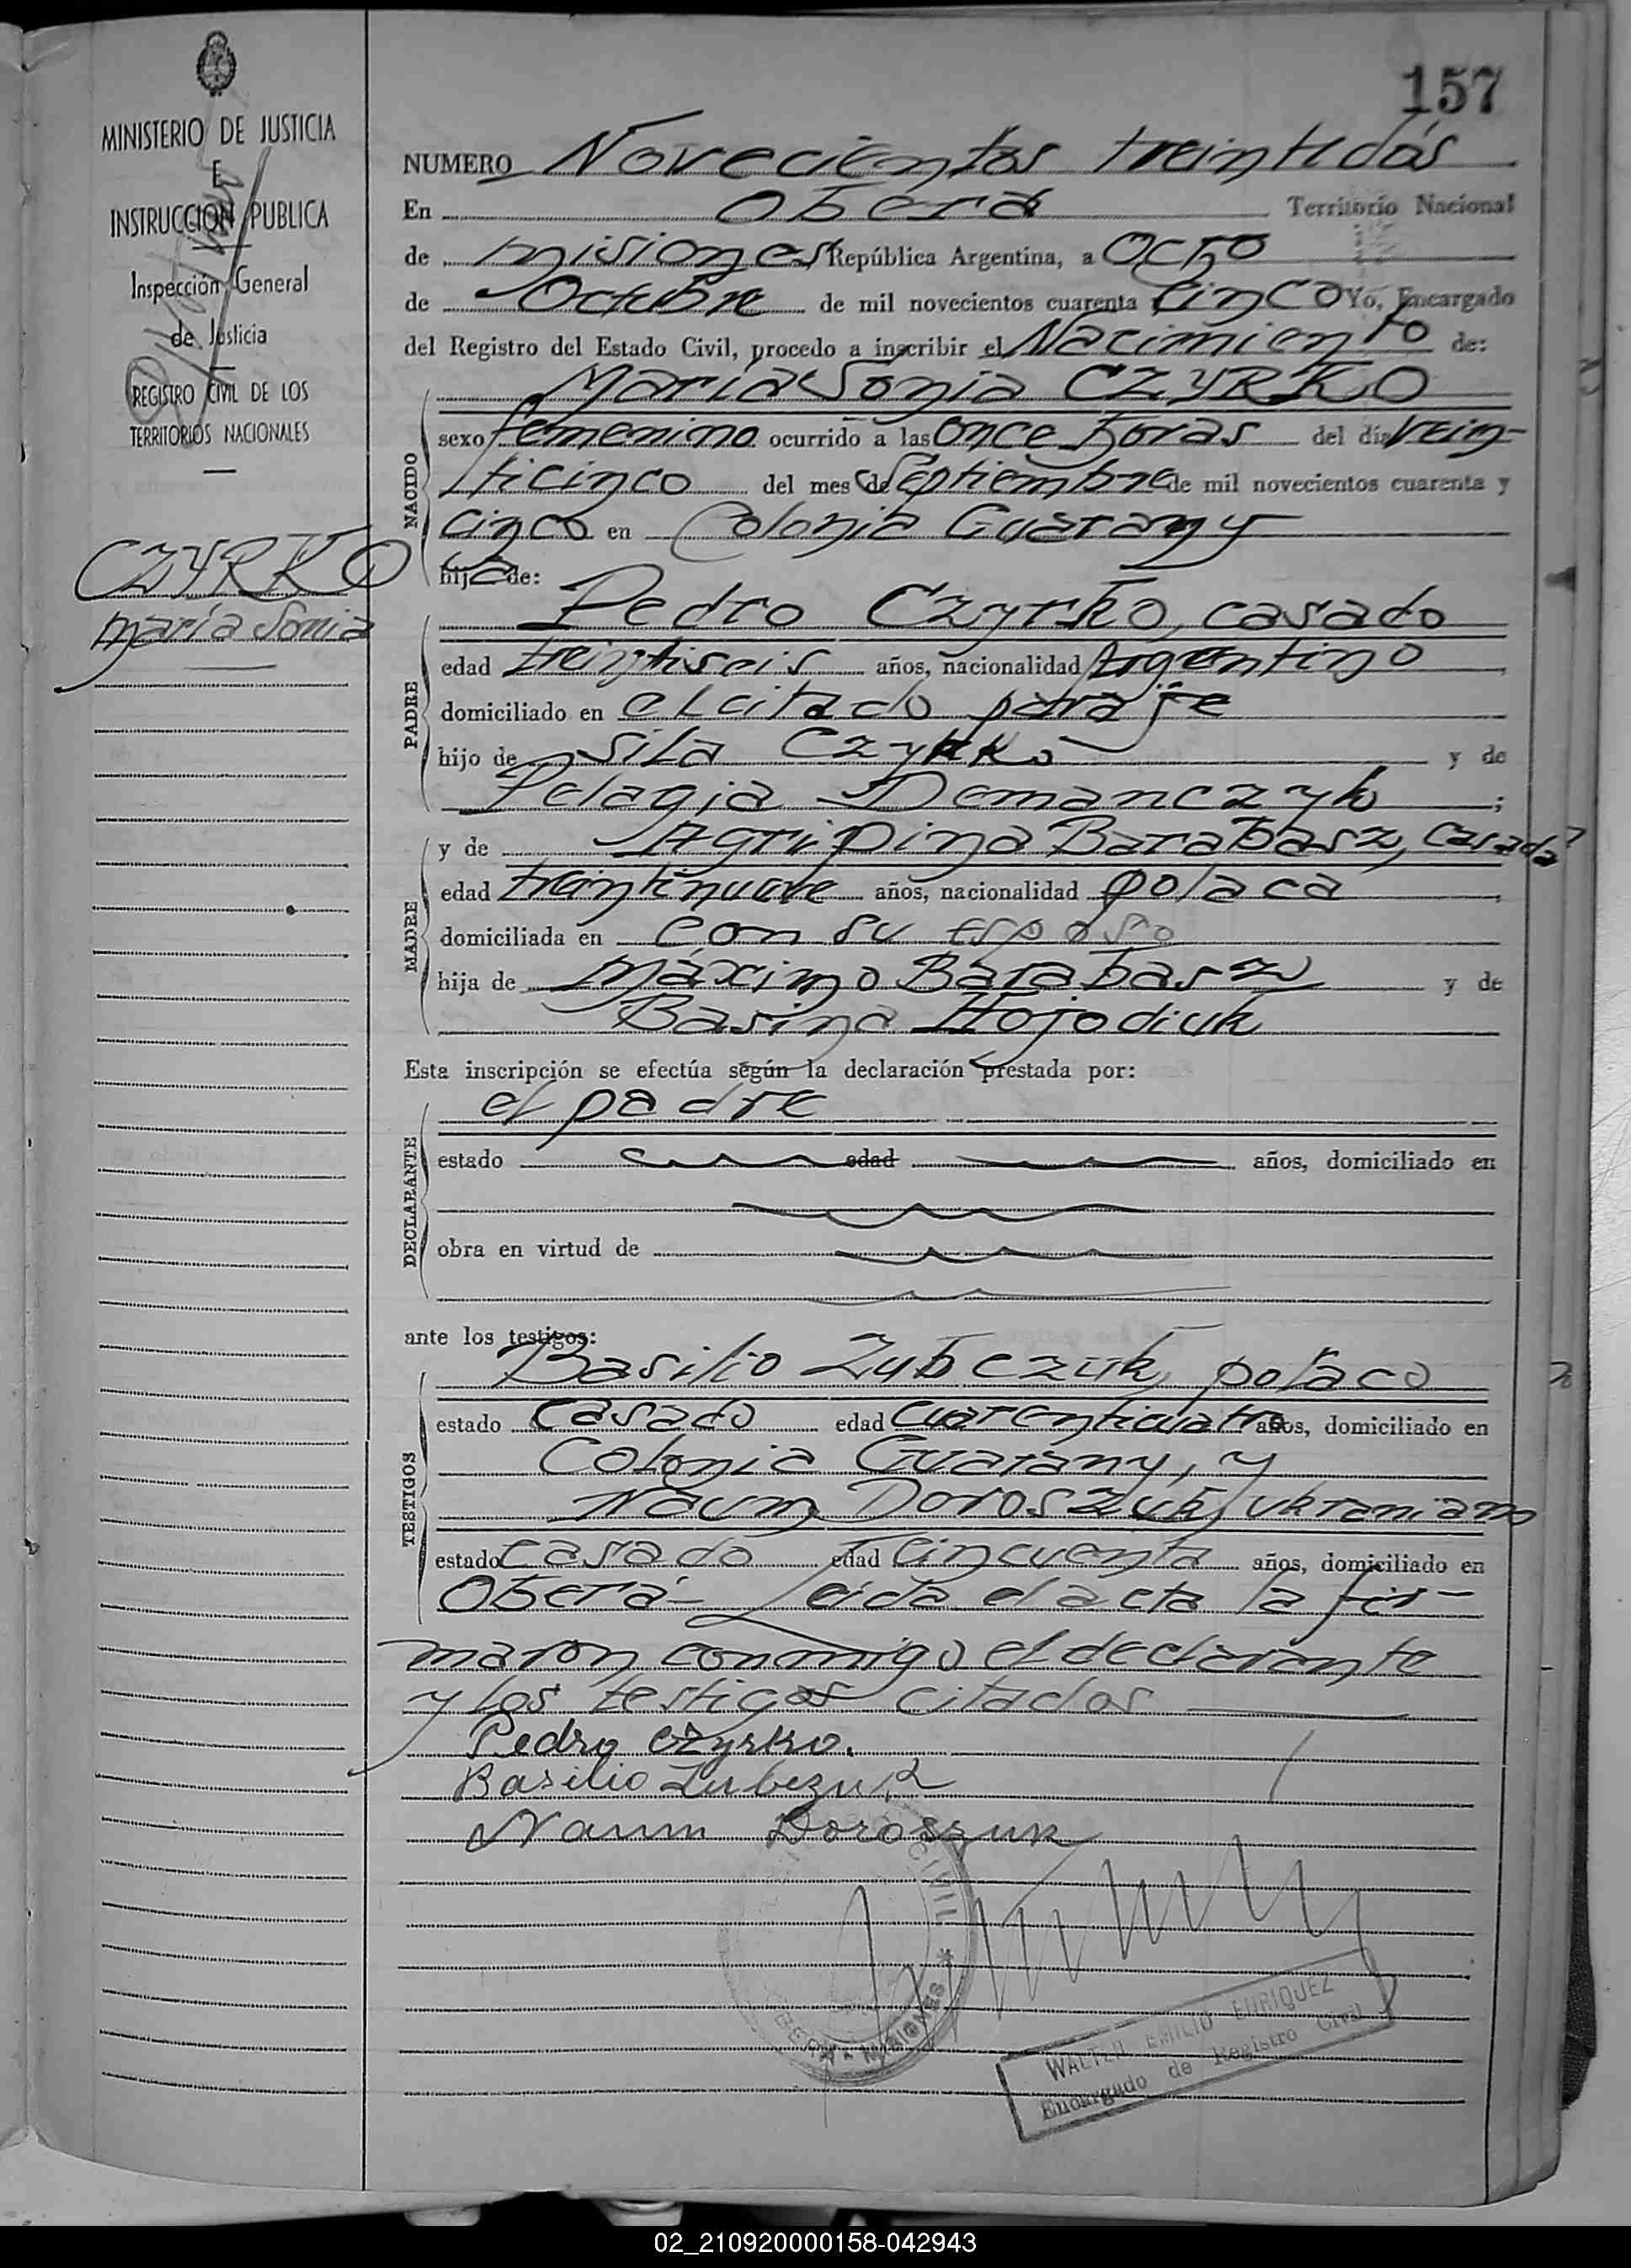 157
MINISTERIO DE JUSTICIA
E
INSTRUCCION PUBLICA
Inspección General
de Justicia
REGISTRO CIVIL DE LOS
TERRITORIOS NACIONALES
CZYRKO
maría Sonia
NUMERO Novecientos treintidós
En Oberá Territorio Nacional
de misiones República Argentina, a Ocho
de Octubre de mil novecientos cuarenta cinco Yo, Encargado
del Registro del Estado Civil, procedo a inscribir el Nacimiento de:
María Sonia CZYRKO
NACIDO
sexo femenino ocurrido a las once horas del día vein-
ticinco del mes de septiembre de mil novecientos cuarenta y
cinco en Colonia Guarany
hija de:
Pedro Czyrko, casado
PADRE
edad treintiseis años, nacionalidad Argentino
domiciliado en el citado paraje
hijo de Sila Czyrko y de
Pelagia Demanczyk;
y de Agripina Barabasz, casada
MADRE
edad treintinueve años, nacionalidad polaca
domiciliada en con su esposo
hija de Máximo Barabasz y de
Basina Hojodiuk
Esta inscripción se efectúa según la declaración prestada por:
el padre
DECLARANTE
estado edad años, domiciliado en
obra en virtud de
ante los testigos:
Basilio Zubczuk, polaco
TESTIGOS
estado casado edad cuarenticuatro años, domiciliado en
Colonia Guarany, y
Naum Doroszuk, ukraniano
estado casado edad cincuenta años, domiciliado en
Oberá- Leida el acta la fir-
maron conmigo el declarante
y los testigos citados
Pedro Czyrko.
Basilio Zubczuk
Naum Doroszuk
CIVIL * OBERA - MISIONES *
WALTER EMILIO ENRIQUEZ
Encargado de Registro Civil
02_210920000158-042943